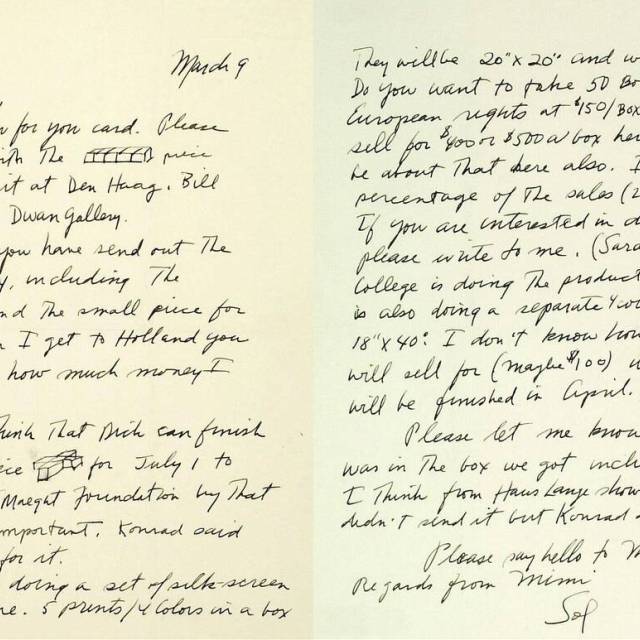 March 9
for you card. Please
the piece
it at Den Haag. Bill
Dwan Gallery.
you have send out the
including The
The small piece for
I get to Holland you
how much money I
Think That Dick can finish
for July 1 to
Maeght foundation by That
important. Konrad said
for it.
doing a set of silk-screen
5 prints/4 colors in a box
They will be 20"x20" and
Do you want to take 50
European rights at $150/Box
sell for $400 or $500 a box
be about That here also.
percentage of The sales
If you are interested in
please write to me.
College is doing The
is also doing a separate 4
18"x40". I don't know
will sell for (maybe $100)
will be finished in April.
Please let me know
was in The box we got
I Think from Haus Lange show
didn't send it but Konrad
Please say hello to
Regards from Mimi
Sol